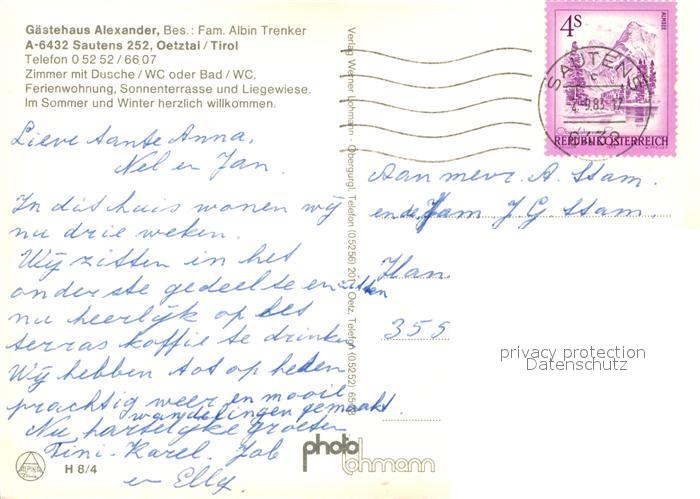 Gästehaus Alexander, Bes.: Fam. Albin Trenker
A-6432 Sautens 252, Oetztal/Tirol
Telefon 0 52 52 / 66 07
Zimmer mit Dusche/WC oder Bad/WC,
Ferienwohnung, Sonnenterrasse und Liegewiese.
Im Sommer und Winter herzlich willkommen.
Lieve tante Anna,
Nel en Jan.
In dit huis wonen wij
nu drie weken.
Wij zitten in het
onderste gedeelte en zitten
nu heerlijk op het
terras koffie te drinken
Wij hebben tot op heden
prachtig weer en mooie
wandelingen gemaakt.
Nu hartelijke groeten
Tini. Karel. Job
en Elly.
ALPINA
H 8/4
Verlag Werner Lohmann · Obergurgl, Telefon (05256) · Oetz, Telefon (05252)
photo
lohmann
4S
ALMSEE
SAUTENS
REPUBLIK ÖSTERREICH
Aan mevr. A. Stam.
en de fam J G Stam.
Han
355
privacy protection
Datenschutz